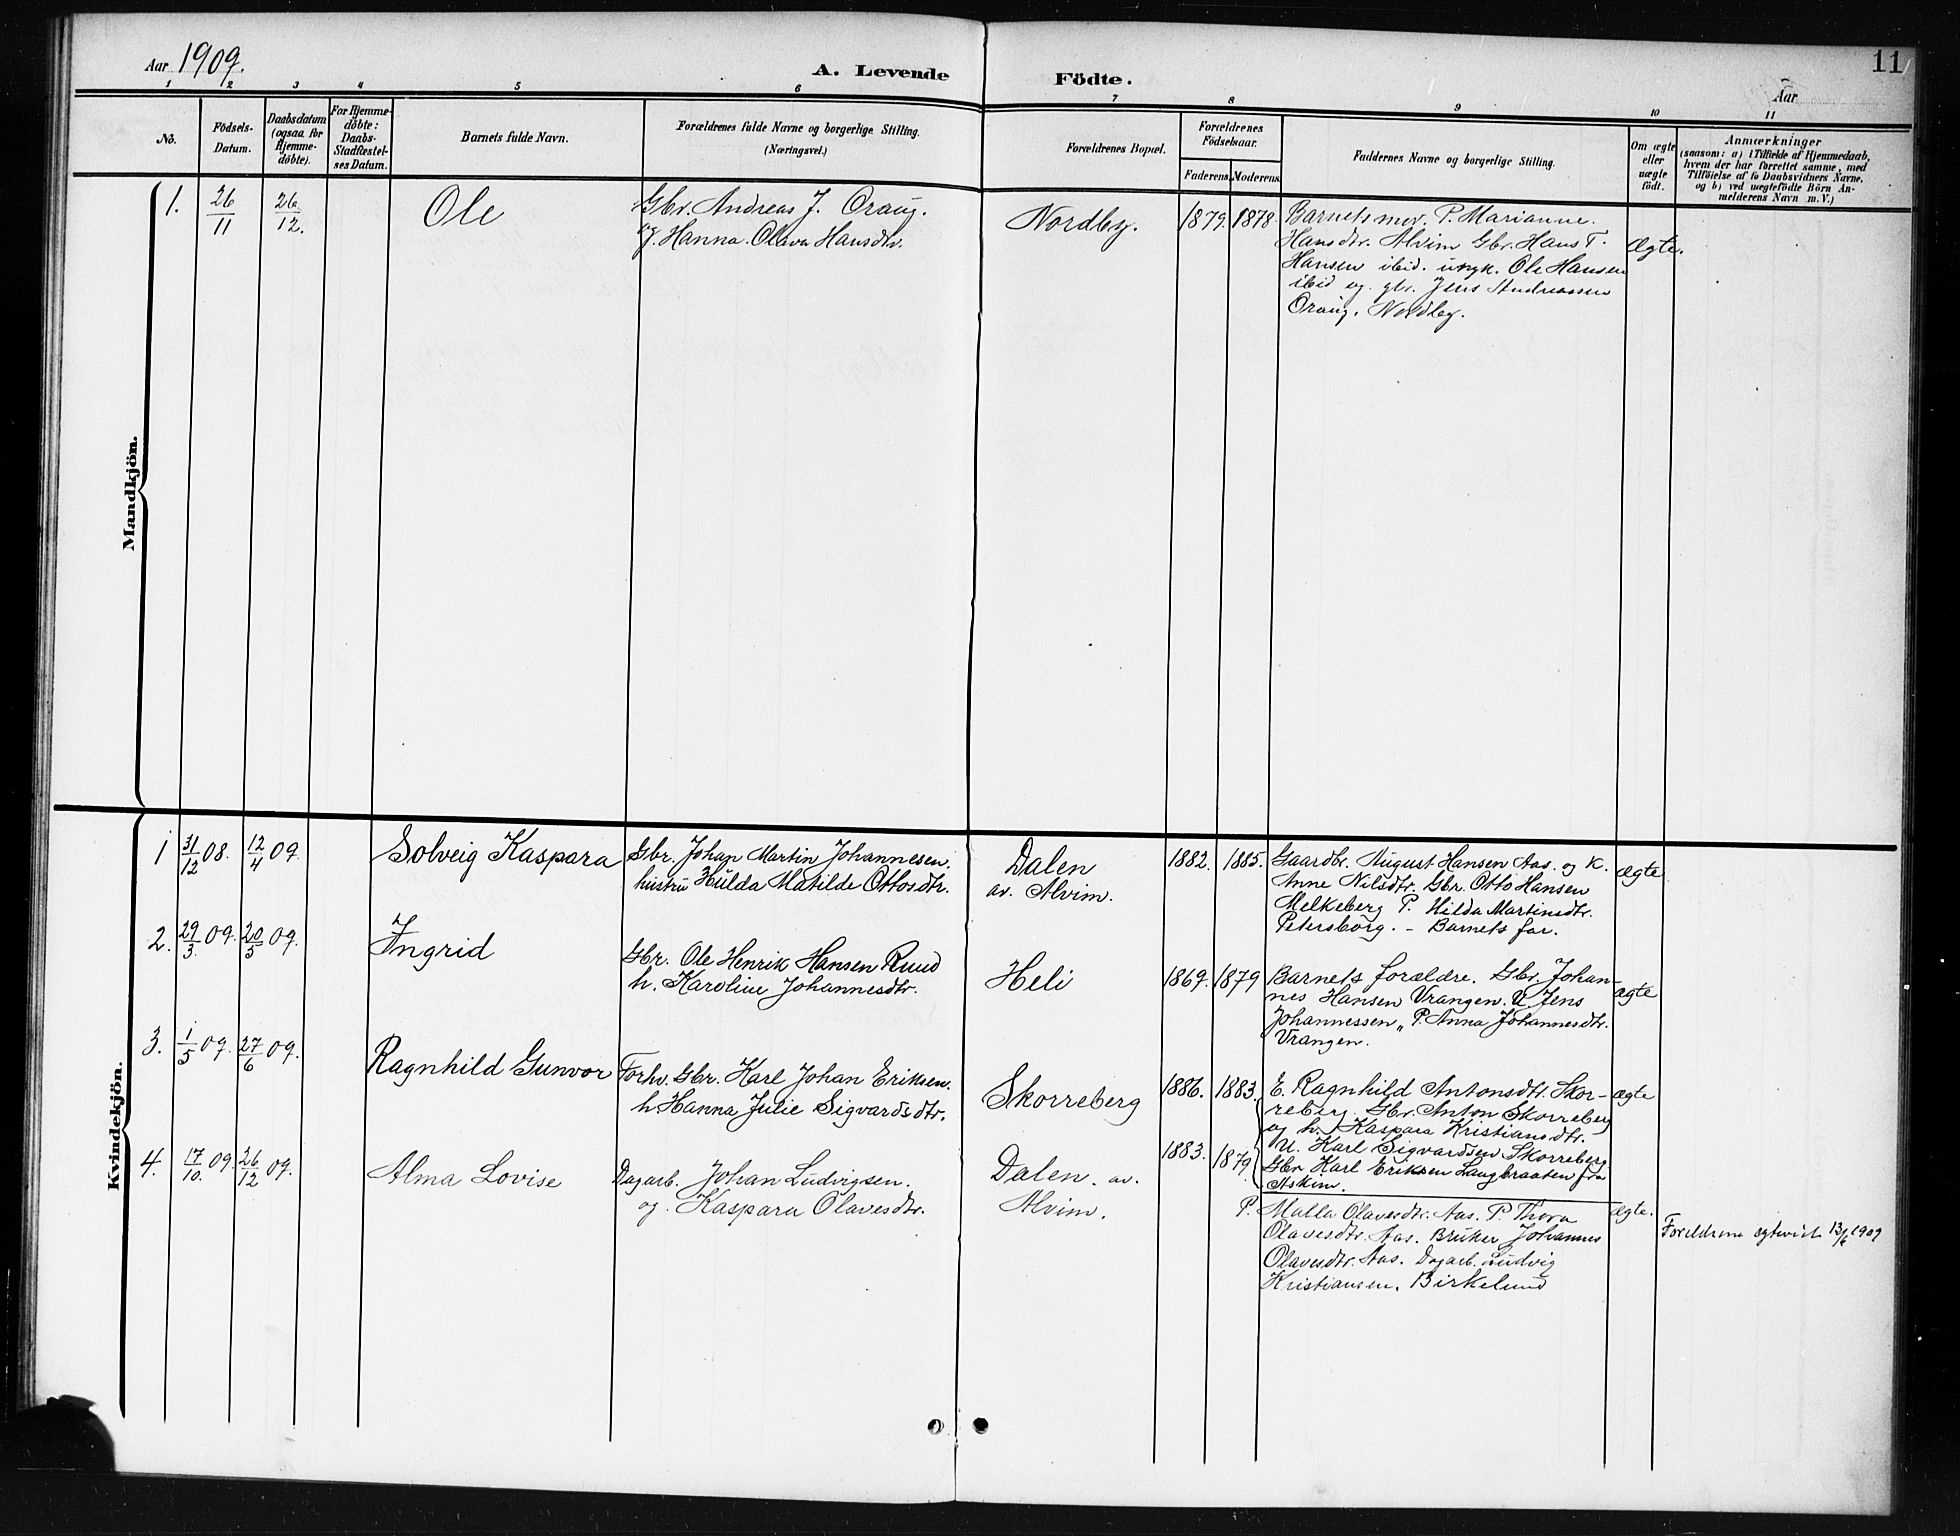 11
Aar 1909.
A. Levende Födte.
Aar
1 2 3 4 5 6 7 8 9 10 11
No.
Födsels-
Datum.
Daabsdatum
(ogsaa for
Hjemme-
döbte).
For Hjemme-
döbte:
Daabs-
Stadfæstel-
ses Datum.
Barnets fulde Navn.
Forældrenes fulde Navne og borgerlige Stilling.
(Næringsvei.)
Forældrenes Bopæl.
Forældrenes
Födselsaar.
Faderens. Moderens.
Faddernes Navne og borgerlige Stilling.
Om ægte
eller
uægte
födt.
Anmærkninger
(saasom: a) i Tilfælde af Hjemmedaab,
hvem der har forrettet samme, med
Tilföielse af to Daabsvidners Navne.
og b) ved uægtefödte Börn An-
melderens Navn m. V.)
Mandkjön.
1. 26/11 26/12. Ole
Gbr. Andreas J. Oraug.
og. Hanna. Olava Hansdtr.
Nordby. 1879. 1878.
Barnets mor. P. Marianne.
Hansdtr. Alvim Gbr. Hans T.
Hansen ibid. ungk. Ole Hansen
ibid og. gbr. Jens Andreassen
Oraug. Nordby.
Ægte.
Kvindekjön.
1 31/12 08. 12/4 09 Solveig Kaspara
Gbr. Johan Martin Johannesen.
hustru Hulda Matilde Ottosdtr.
Dalen
av. Alvim.
1882. 1885.
Gaardbr. August Hansen Aas. og K.
Anne Nilsdtr. Gbr. Otto Hansen
Melkeberg P. Hilda Martinsdtr.
Petersborg. - Barnets far.
Ægte
2. 29/3 09. 20/5 09. Ingrid
Gbr. Ole Henrik Hansen Ruud
h. Karoline Johannesdtr.
Heli 1869. 1879
Barnets forældre. Gbr. Johan-
nes Hansen Vrangen. U Jens
Johannessen „ P. Anna Johannesdtr.
Vrangen.
ægte
3. 1/5 09. 27/6 09. Ragnhild Gunvor
Forhv. Gbr. Karl Johan Eriksen.
h Hanna Julie Sigvardsdtr.
Skorreberg 1886. 1883.
E. Ragnhild Antonsdtr. Skor-
reberg. Gbr. Anton Skorreberg
og h. Kaspara Kristiansdtr.
U. Karl Sigvardsen Skorreberg
Gbr Karl Eriksen Langbraaten fra
Askim.
ægte
4. 17/10. 09. 26/12 09. Alma Lovise
Dagarb. Johan Ludvigsen.
og. Kaspara Olavesdtr.
Dalen. av.
Alvim.
1883. 1879
P. Malla Olavesdtr. Aas. P. Thora
Olavesdtr. Aas. Bruker Johannes
Olavesdtr. Aas. Dagarb. Ludvig
Kristiansen. Birkelund
ægte.
Foreldrene egteviet 1909